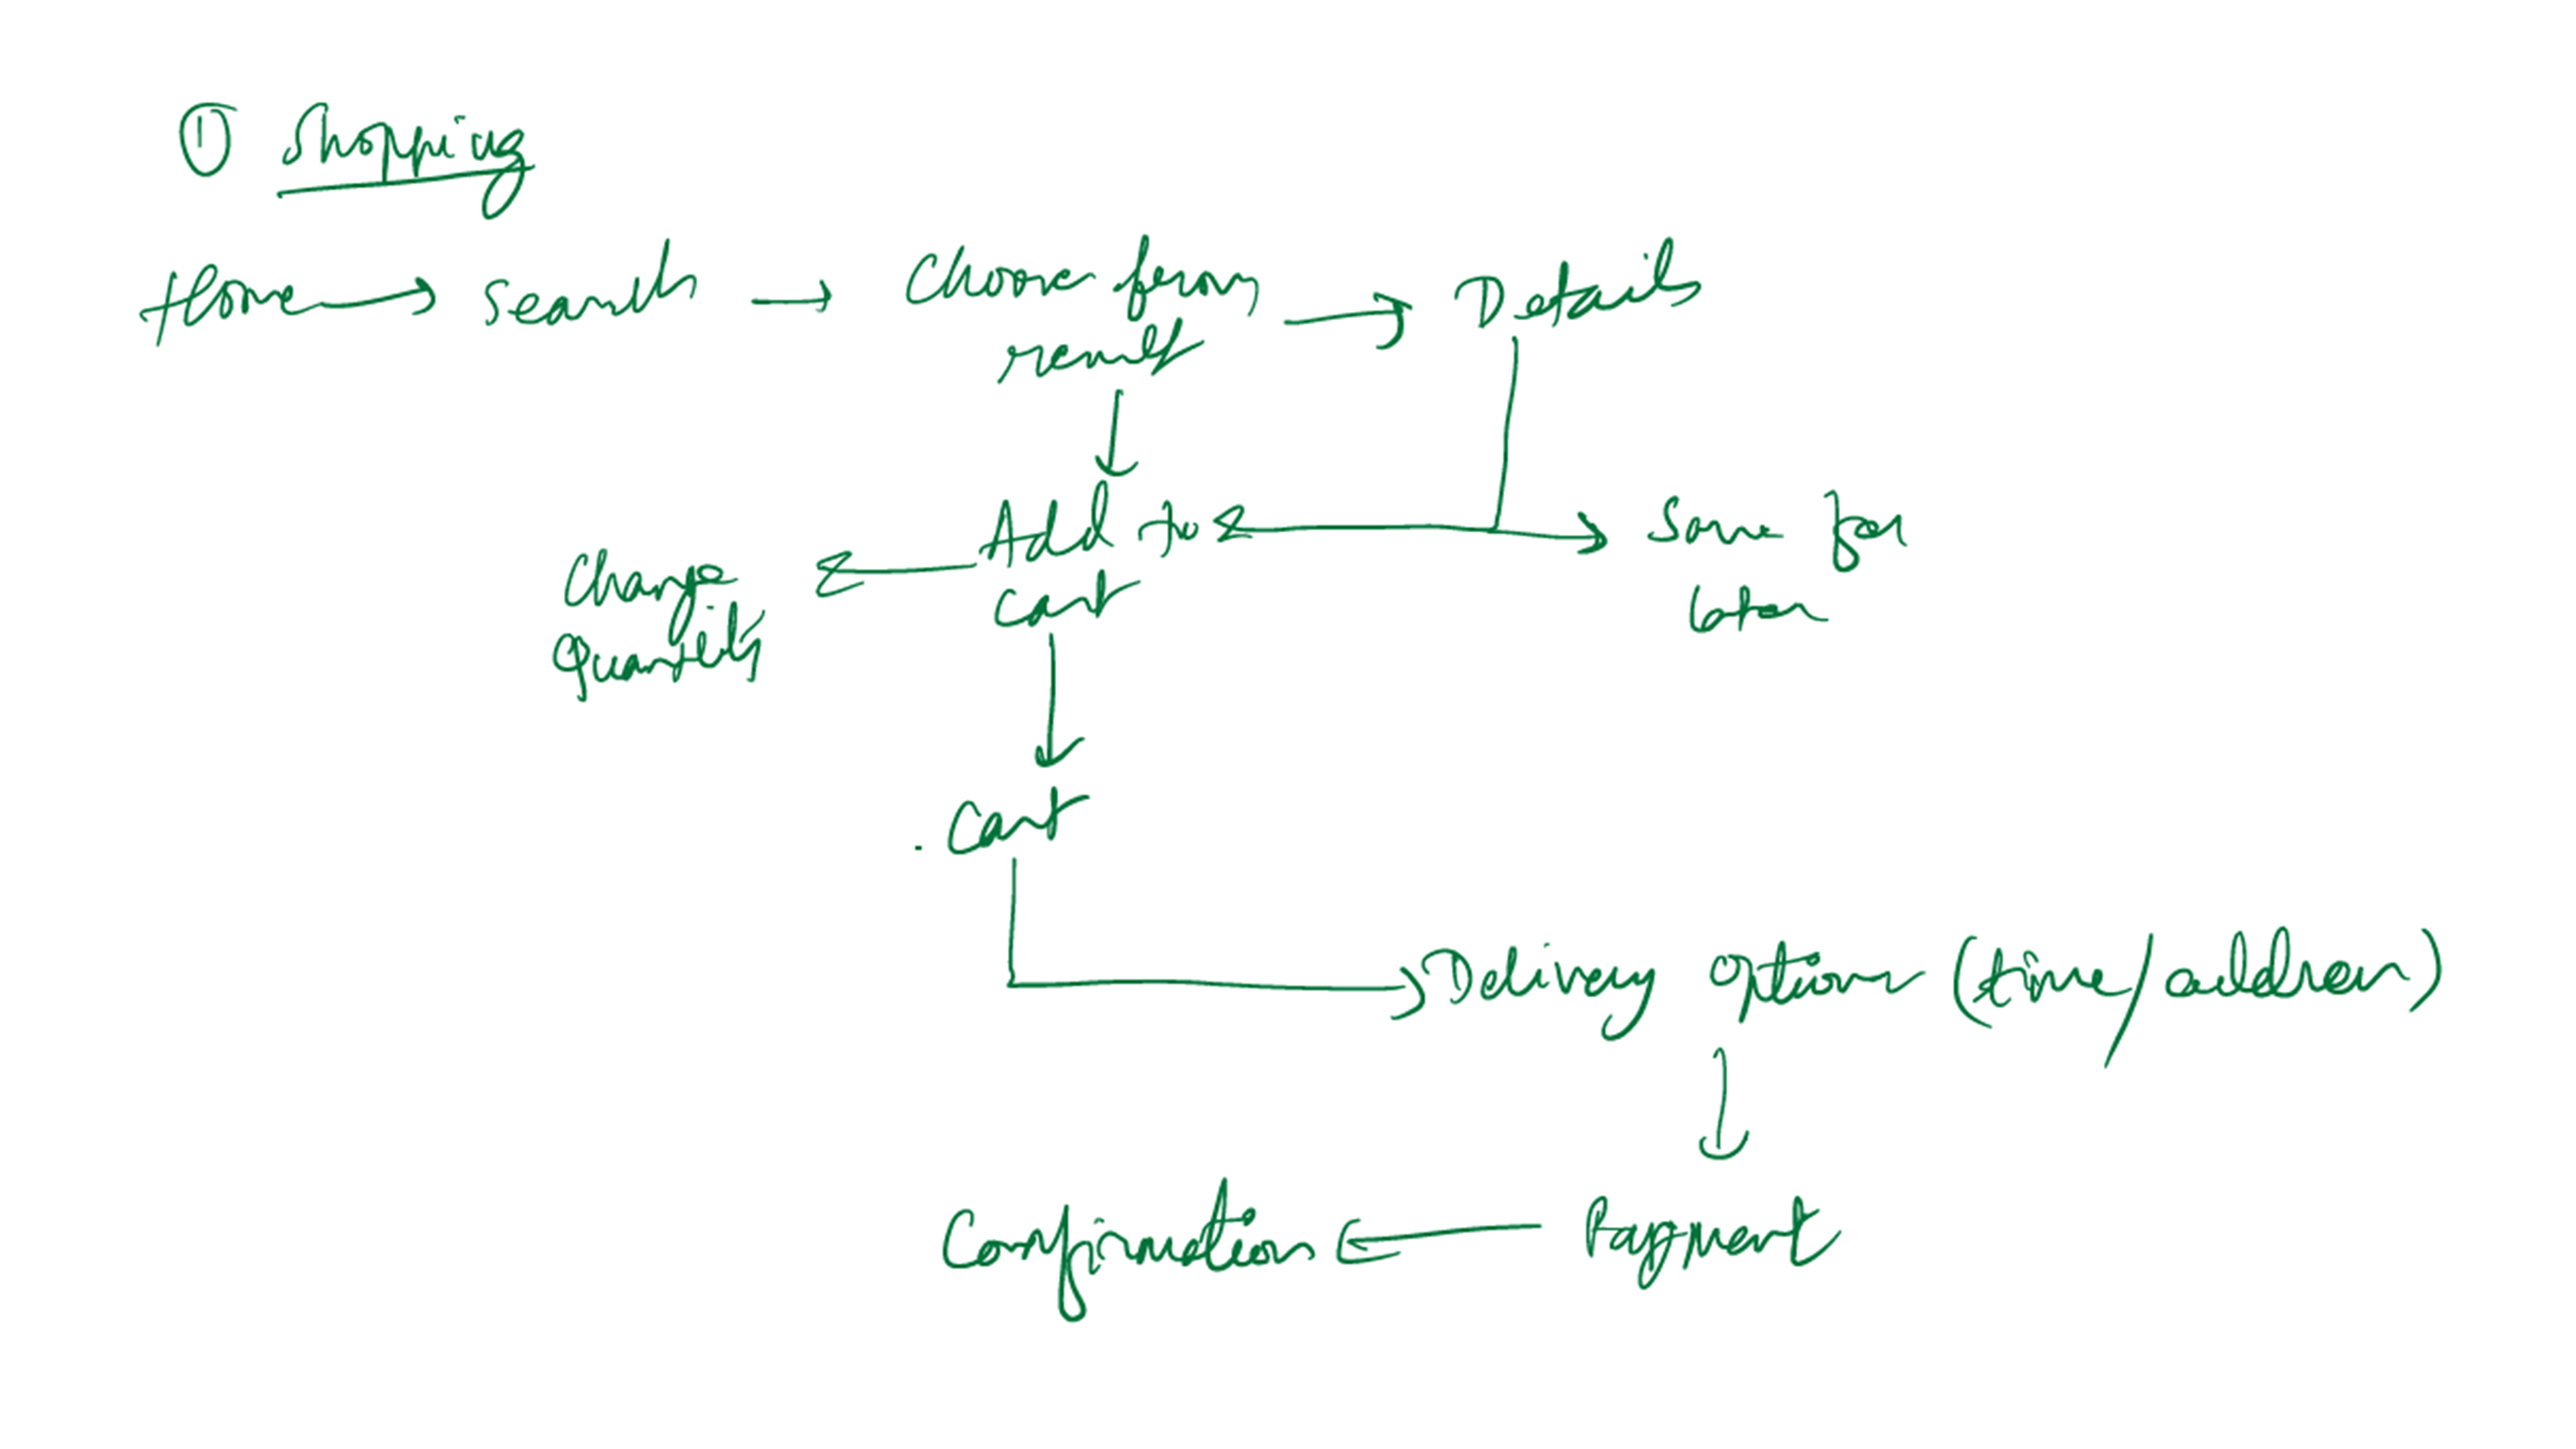 ① Shopping
Home → Search → Choose from → Details
result
Add to
Save for
Change
cart
later
Quantity
Cart
Delivery Options (time/address)
Confirmation ← Payment